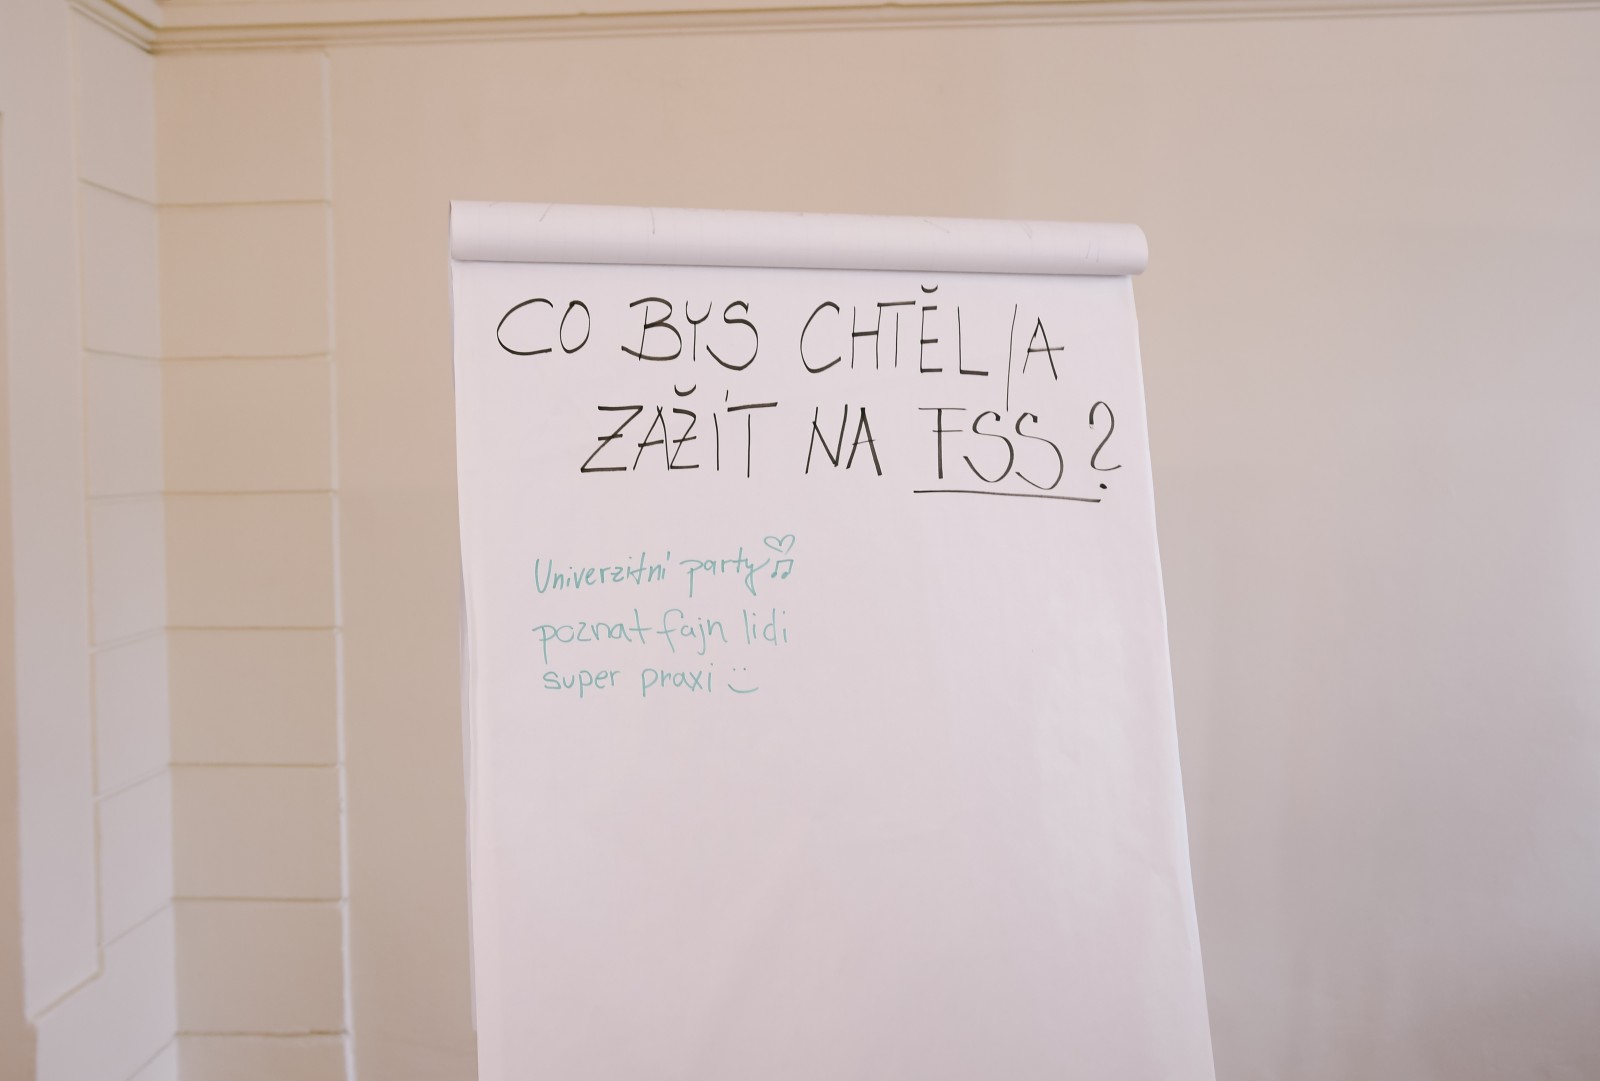 CO BYS CHTĚL/A
ZAŽÍT NA FSS?
Univerzitní party
poznat fajn lidi
super praxi